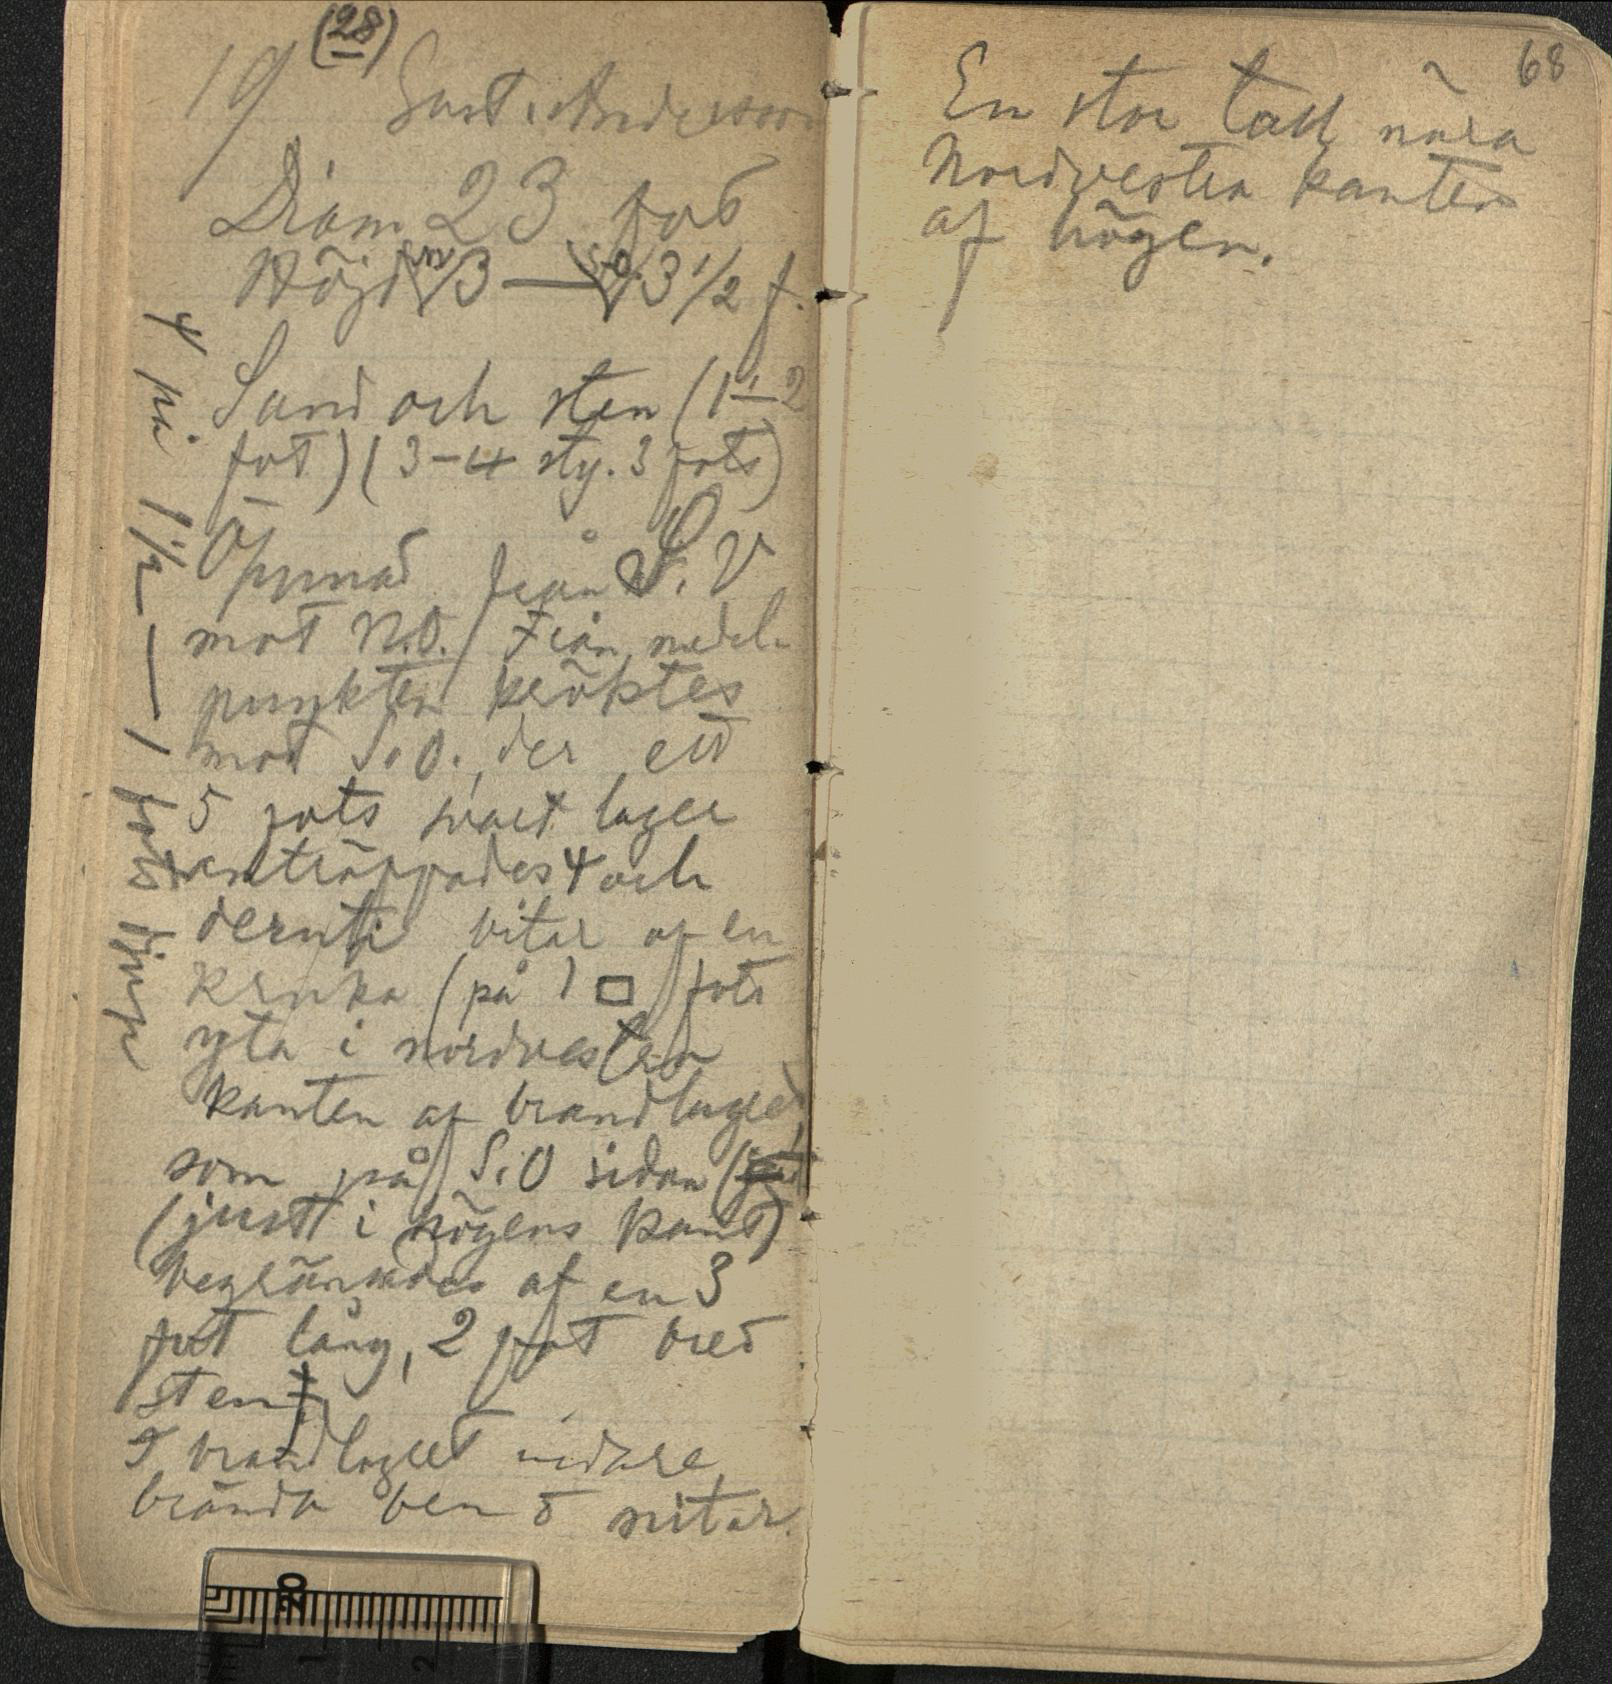 (28)
19 Gust. Andersson
Diam 23 fot
Höjd NV 3 — S.O. 3 1/2 f.
Sand och sten (1–2
fot) (3–4 sty. 3 fots)
Öppnad från S.V
mot N.O. Från medel-
punkten kröktes
mot S.O., der ett
5 fots svart lager
anträffades 4 och
deruti bitar af en
kruka (på 1 □ fots
yta i nordvestra
kanten af brandlagret,
som på S.O sidan
(just i högens kant)
begränsades af en 3
fot lång, 2 fot bred
sten.
I brandlagret vidare
brända ben o nitar.
4 på 1 1/2 — 1 fots djup
68
En stor tall nära
Nordvestra kanten
af högen.